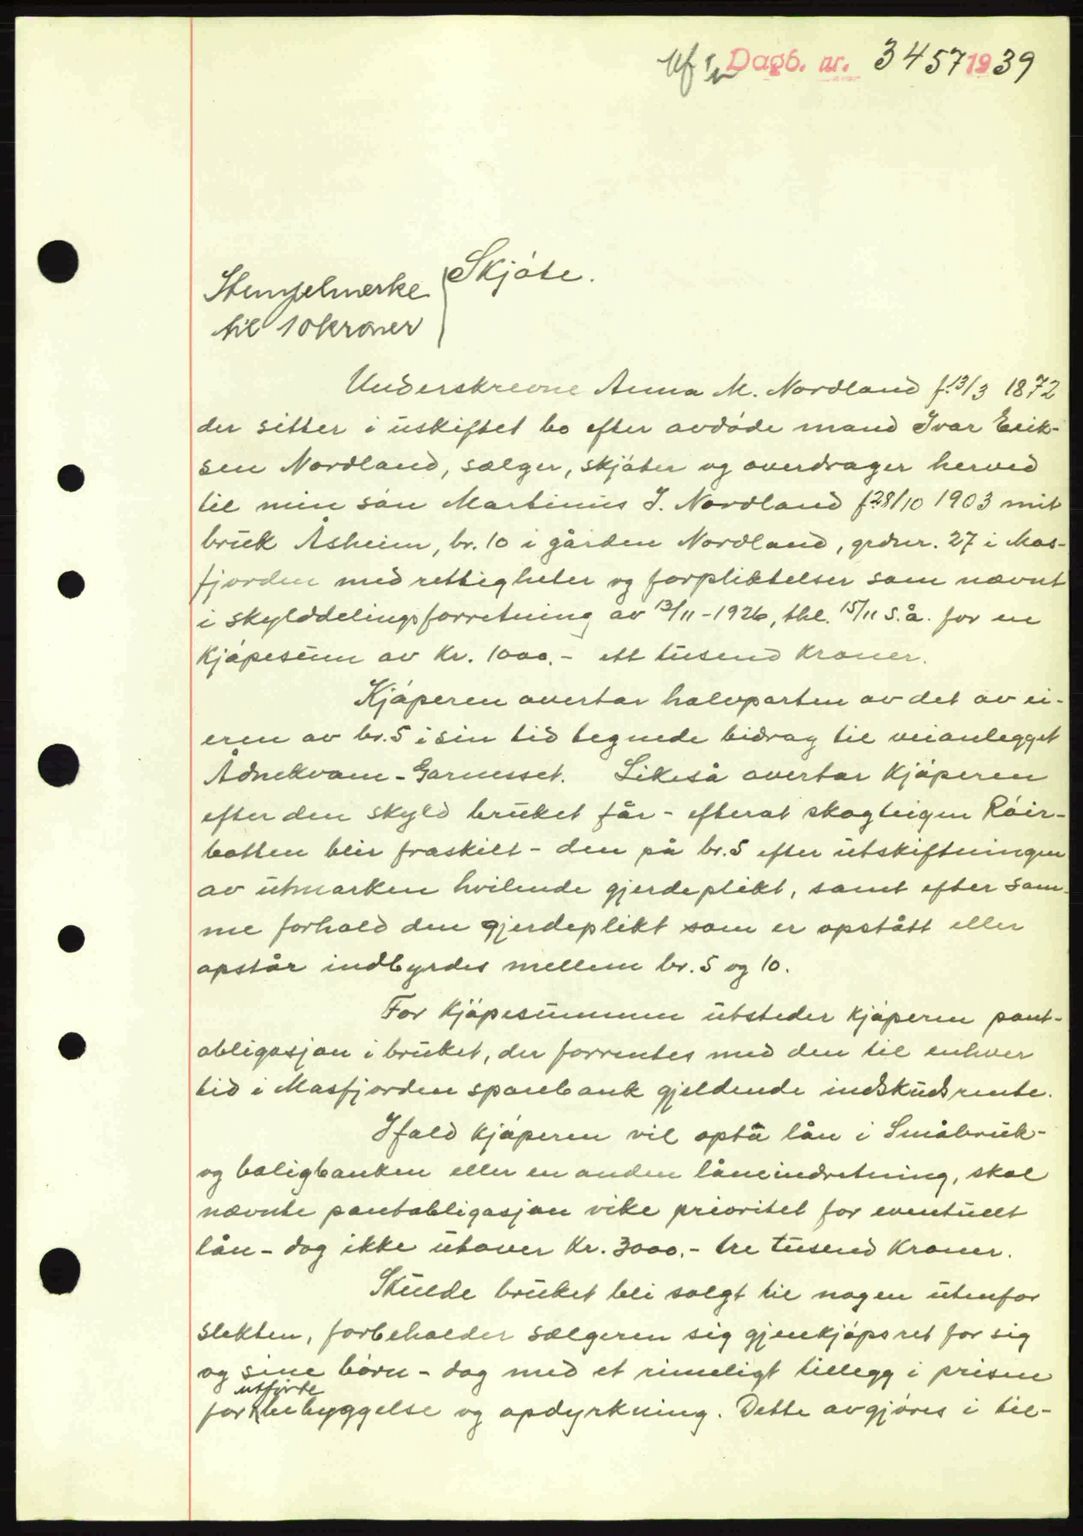 Dagb. nr. 3457 1939
Skjøte.
Stempelmerke
til 10 kroner
Underskrevne Anna M. Nordland f. 13/3 1872
der sitter i uskiftet bo efter avdøde mand Ivar Erik-
sen Nordland, sælger, skjøter og overdrager herved
til min søn Martinus J. Nordland f. 28/10 1903 mit
bruk Åsheim, br. 10 i gården Nordland, grdnr. 27 i Mas-
fjorden med rettigheter og forpliktelser som nævnt
i skylddelingsforretning av 12/11-1926, thl. 15/11 s.å. for en
kjøpesum av kr. 1000,- ett tusend kroner.
Kjøperen overtar halvparten av det av ei-
eren av br. 5 i sin tid tegnede bidrag til veianlegget
Ådnekvam - Garnesset. Likeså overtar kjøperen
efter den skyld bruket får - efterat skogteigen Røir-
botten blir fraskilt - den på br. 5 efter utskiftningen
av utmarken hvilende gjerdeplikt, samt efter sam-
me forhold den gjerdeplikt som er opstått eller
opstår indbyrdes mellem br. 5 og 10.
For kjøpesummen utsteder kjøperen pant-
obligasjon i bruket, der forrentes med den til enhver
tid i Masfjorden sparebank gjeldende indskudsrente.
Ifald kjøperen vil opta lån i Småbruk-
og boligbanken eller en anden låneindretning, skal
nævnte pantobligasjon vike prioritet for eventuelt
lån - dog ikke utover kr. 3000,- tre tusend kroner.
Skulde bruket bli solgt til nogen utenfor
slekten, forbeholder sælgeren sig gjenkjøpsret for sig
og sine børn - dog med et rimeligt tillegg i prisen
utførte
for bebyggelse og opdyrkning. Dette avgjøres i til-